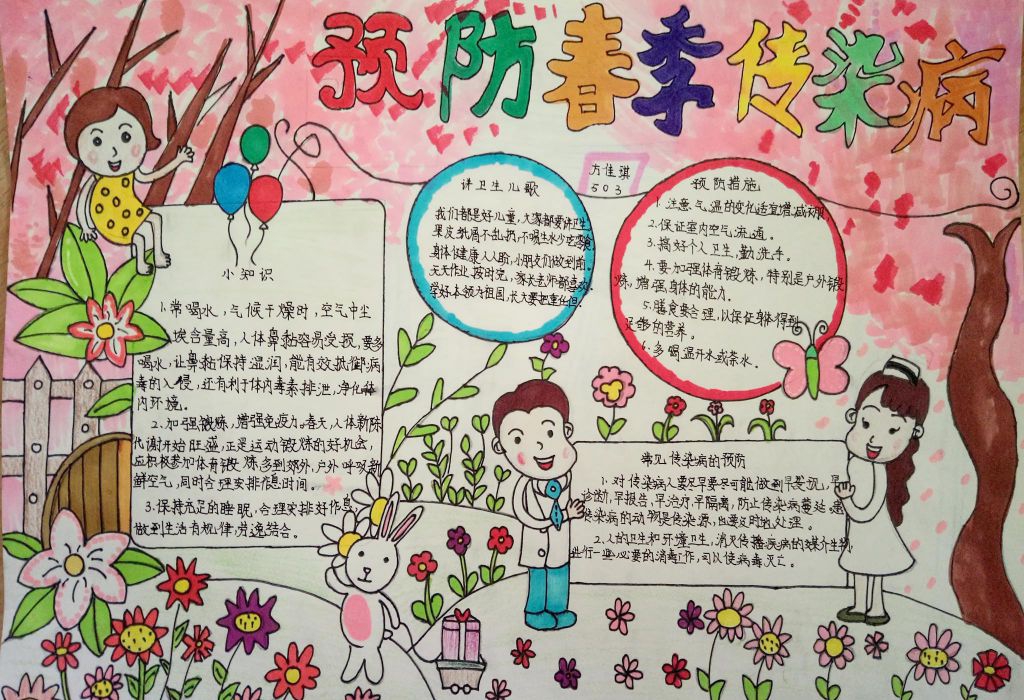 预防春季传染病
方佳琪
503
小知识
1.常喝水,气候干燥时,空气中尘
埃含量高,人体鼻黏容易受损,要多
喝水,让鼻黏保持湿润,能有效抵御病
毒的入侵,还有利于体内毒素排泄,净化体
内环境。
2.加强锻炼,增强免疫力。春天,人体新陈
代谢开始旺盛,正是运动锻炼的好机会,
应积极参加体育锻炼,多到郊外,户外呼吸新
鲜空气,同时合理安排作息时间。
3.保持充足的睡眠,合理安排好作息,
做到生活有规律,劳逸结合。
讲卫生儿歌
我们都是好儿童,大家都要讲卫生
果皮纸屑不乱扔,不喝生水少吃零食
身体健康人人盼,小朋友们做到前。
天天作业按时完,家长老师都喜欢。
学好本领为祖国,长大要把重任担。
预防措施
1.注意气温的变化适宜增减衣服。
2.保证室内空气流通。
3.搞好个人卫生,勤洗手。
4.要加强体育锻炼,特别是户外锻
炼,增强身体的能力。
5.膳食要合理,以保证身体得到
足够的营养。
6.多喝温开水或茶水。
常见传染病的预防
1.对传染病人要尽早要尽可能做到早发现,早
诊断,早报告,早治疗,早隔离,防止传染病蔓延。患
传染病的动物是传染源,也要及时地处理。
2.人的卫生和环境卫生,消灭传播疾病的媒介生物
进行一些必要的消毒工作,可以使病毒灭亡。